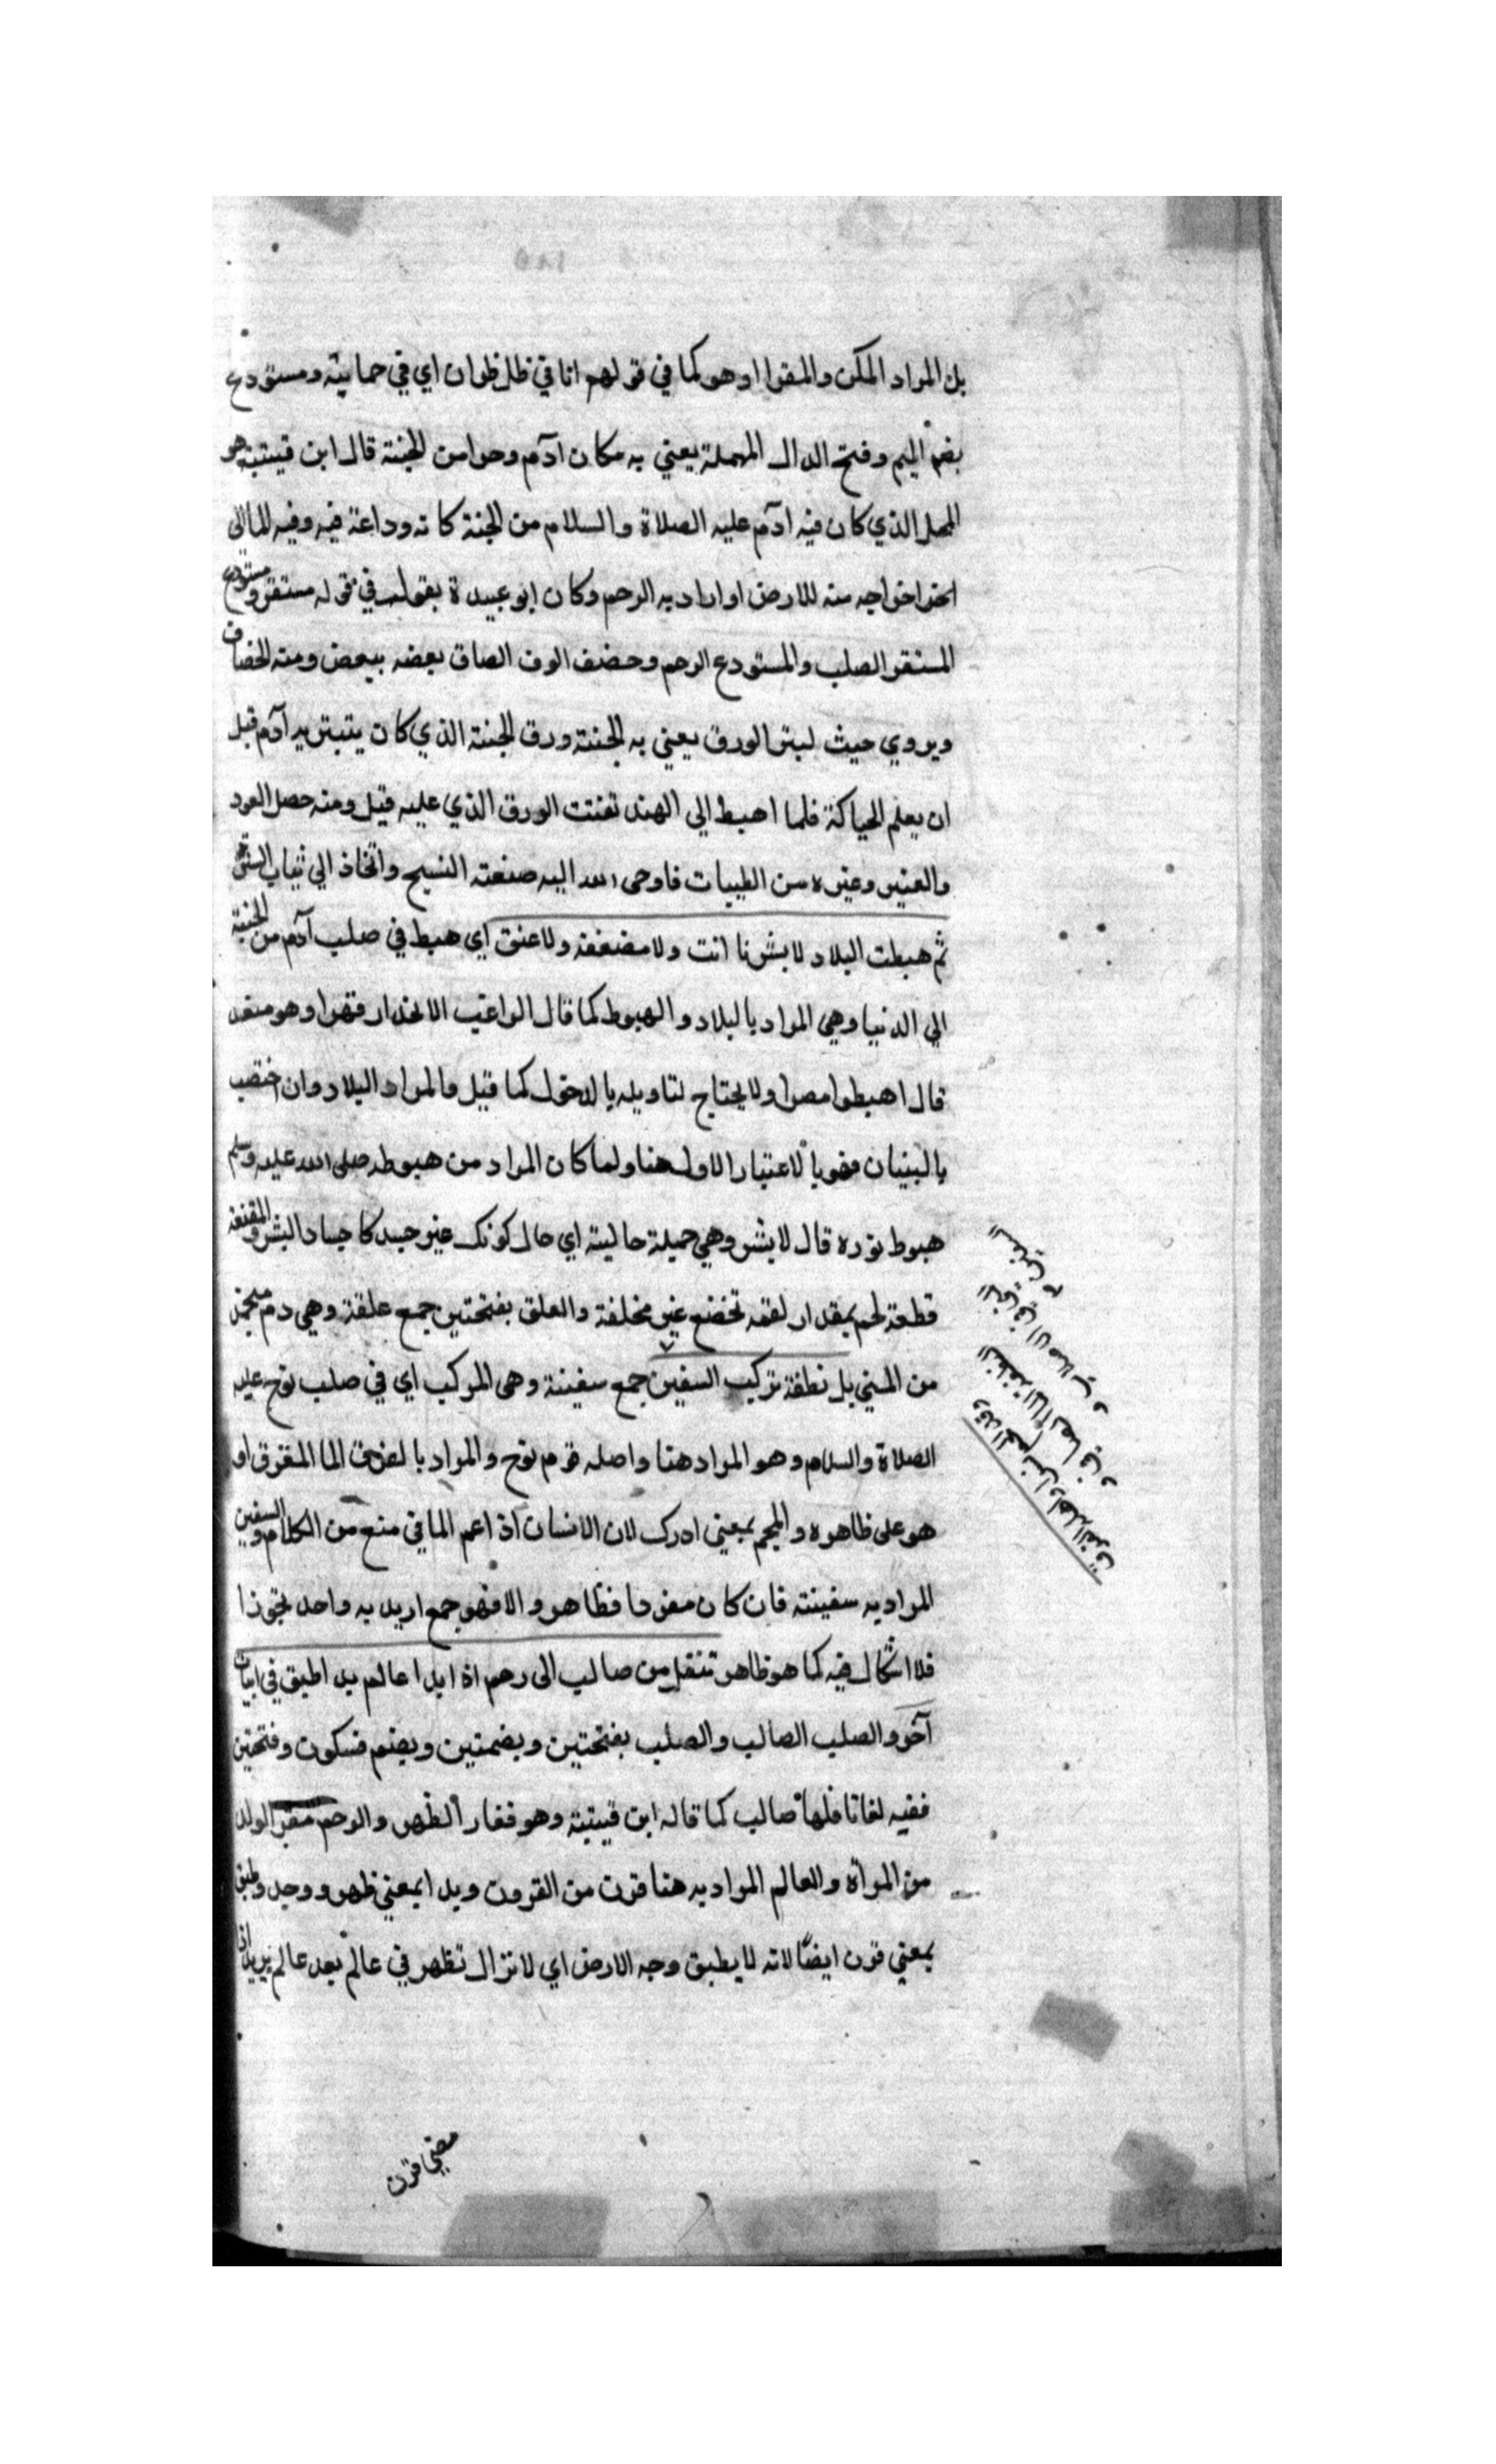 بل المراد المكن والمقرا اوهو كما في قولهم انا في ظل فلان اي في حمايته ومستودع
بضم الميم وفتح الدال المهملة يعني به مكان ادم وحوا من الجنة قال ابن قيتبة هو
المحل الذي كان فيه ادم عليه الصلاة والسلام من الجنة كانه وداعة فيه وفيه للمالى
اخراجه منه للارض او اراد به الرحم وكان ابو عبيدة يقول في قوله مستقر ومستودع
المستقر الصلب والمستودع الرحم وحضف الورق الصاق بعضه ببعض ومنه الخصاف
ويروي حيث لبس الورق يعني به الجنة ورق الجنة الذي كان يتستر به آدم قبل
ان يعلم الحياكة فلما اهبط الي الهند تفتت الورق الذي عليه قيل ومنه حصل العود
والعنبر وغيره من الطيبات فاوحى الله اليه صنعته النسيج واتخاذ الي ثياب
ثم هبطت البلاد لا بشرنا انت ولا مضغفة ولا علق اي هبط في صلب آدم من الجنة
الي الدنيا وهي المراد بالبلاد والهبوط كما قال الراغب الانحدار قهرا وهو متعد
قال اهبطوا مصرا ولا يحتاج لتاويله بالدخول كما قيل والمراد البلاد وان اختصت
بالبنيان فهو بالاعتبار الاول هنا ولما كان المراد من هبوطه صلى الله عليه وسلم
هبوط نوره قال لا بشر وهي جملة حالية اي حال كونك غير جسد كاجساد البشر والمضغة
قطعة لحم بمقدار لقمة تخضع غير مخلفة والعلق بفتحتين جمع علقة وهي دم منجمد
من المني بل نطفة تركب السفين جمع سفينة وهي المركب اي في صلب نوح عليه
الصلاة والسلام وهو المراد هنا واصله قوم نوح والمراد بالغرق الما المغرق او
هو على ظاهره والجم بمعنى ادرك لان الانسان اذا عم الما في منع من الكلام والسفين
المراد به سفينته فان كان مفردا فظاهر والا فهو جمع اريد به واحد تجوزا
فلا اشكال فيه كما هو ظاهر تنقل من صالب الى رحم اذا بدا عالم بدا طبق في ابيات
آخر والصلب الصالب والصلب بفتحتين وبضمتين وبضم فسكون وفتحتين
ففيه لغاتا فلها صالب كما قاله ابن قيتبة وهو فقار الظهر والرحم مقر الولد
من المرأة والعالم المراد به هنا قرن من القرون وبدا بمعني ظهر ووجد وطبق
بمعني قرن ايضا لانه لا يطبق وجه الارض اي لا تزال تظهر في عالم بعد عالم يريد اذا
وقد الجم نسرا واهله الغرق
مضي قرن